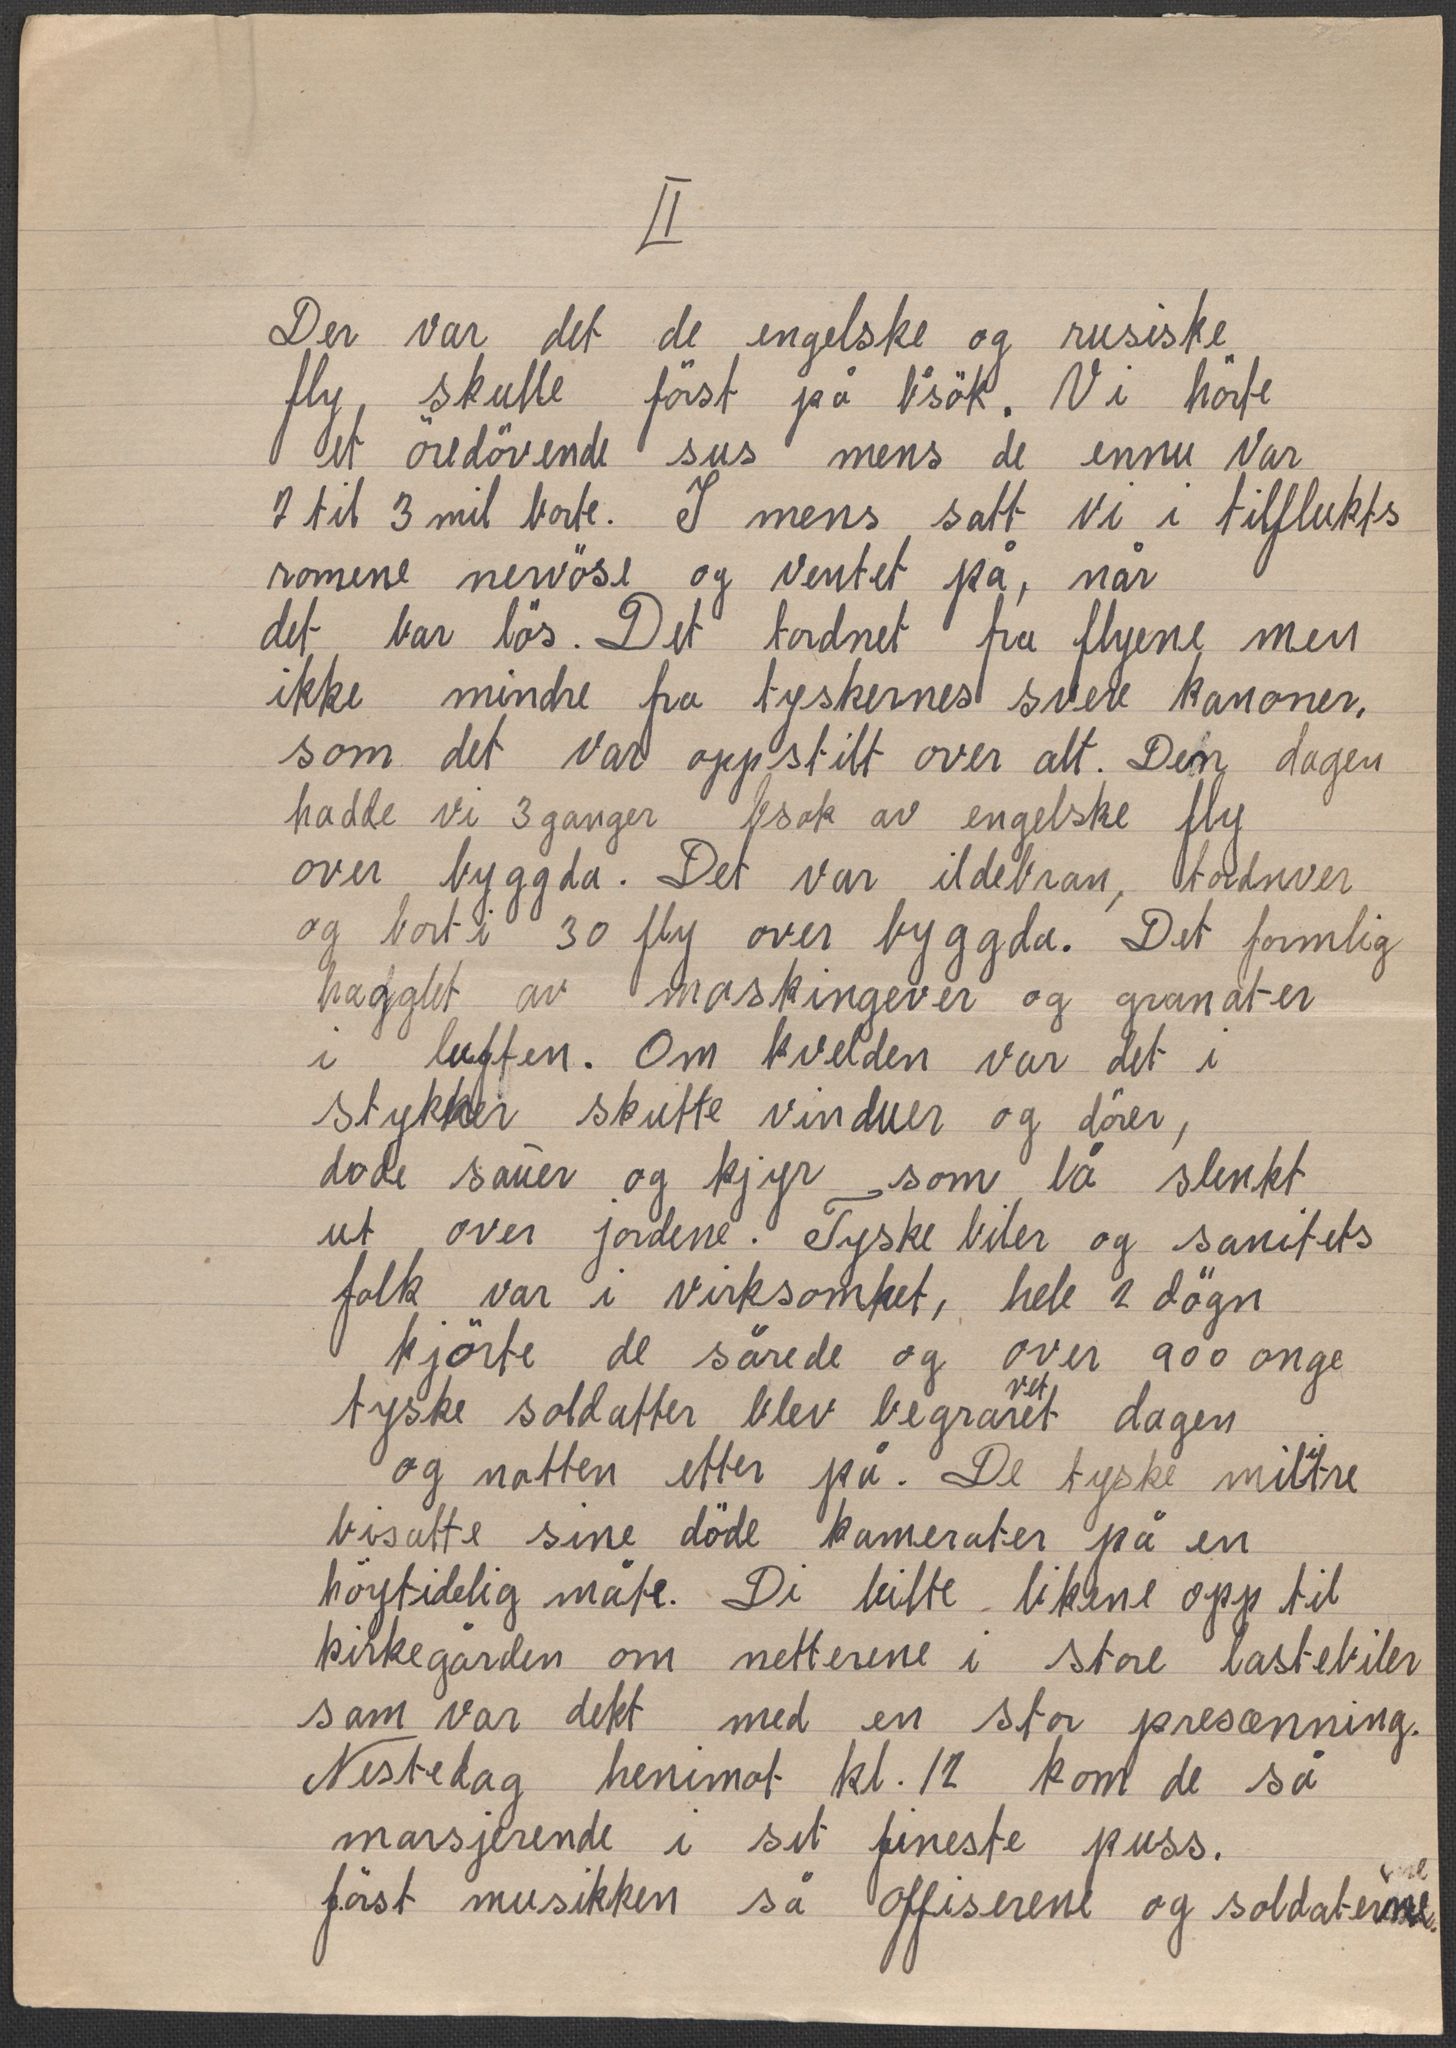 II
Der var det de engelske og rusiske
fly, skulle först på bsök. Vi hörte
et öredövende sus mens de ennu var
2 til 3 mil borte. I mens satt vi i tilflukts
romene nervöse og ventet på, når
det bar lös. Det tordnet fra flyene men
ikke mindre fra tyskernes svere kanoner,
som det var oppstilt over alt. Den dagen
hadde vi 3 ganger bsøk av engelske fly
over byggda. Det var ildebran, tordnver
og bort i 30 fly over byggda. Det formlig
hagglet av maskingever og granater
i luften. Om kvelden var det i
stykker skutte vinduer og dörer,
døde sauer og kjyr som lå slenkt
ut over jordene. Tyske biler og sanitets
folk var i virksomhet, hele 2 dögn
kjörte de sårede og over 900 onge
tyske soldatter blev begravet dagen
og natten etter på. De tyske militre
bisatte sine döde kamerater på en
höytidelig måte. Di bilte likene opp til
kirkegården om netterene i store lastebiler
som var dekt med en stor presenning.
Nestedag henimot kl. 12 kom de så
marsjerende i sit fineste puss.
först musikken så offiserene og soldaterne.